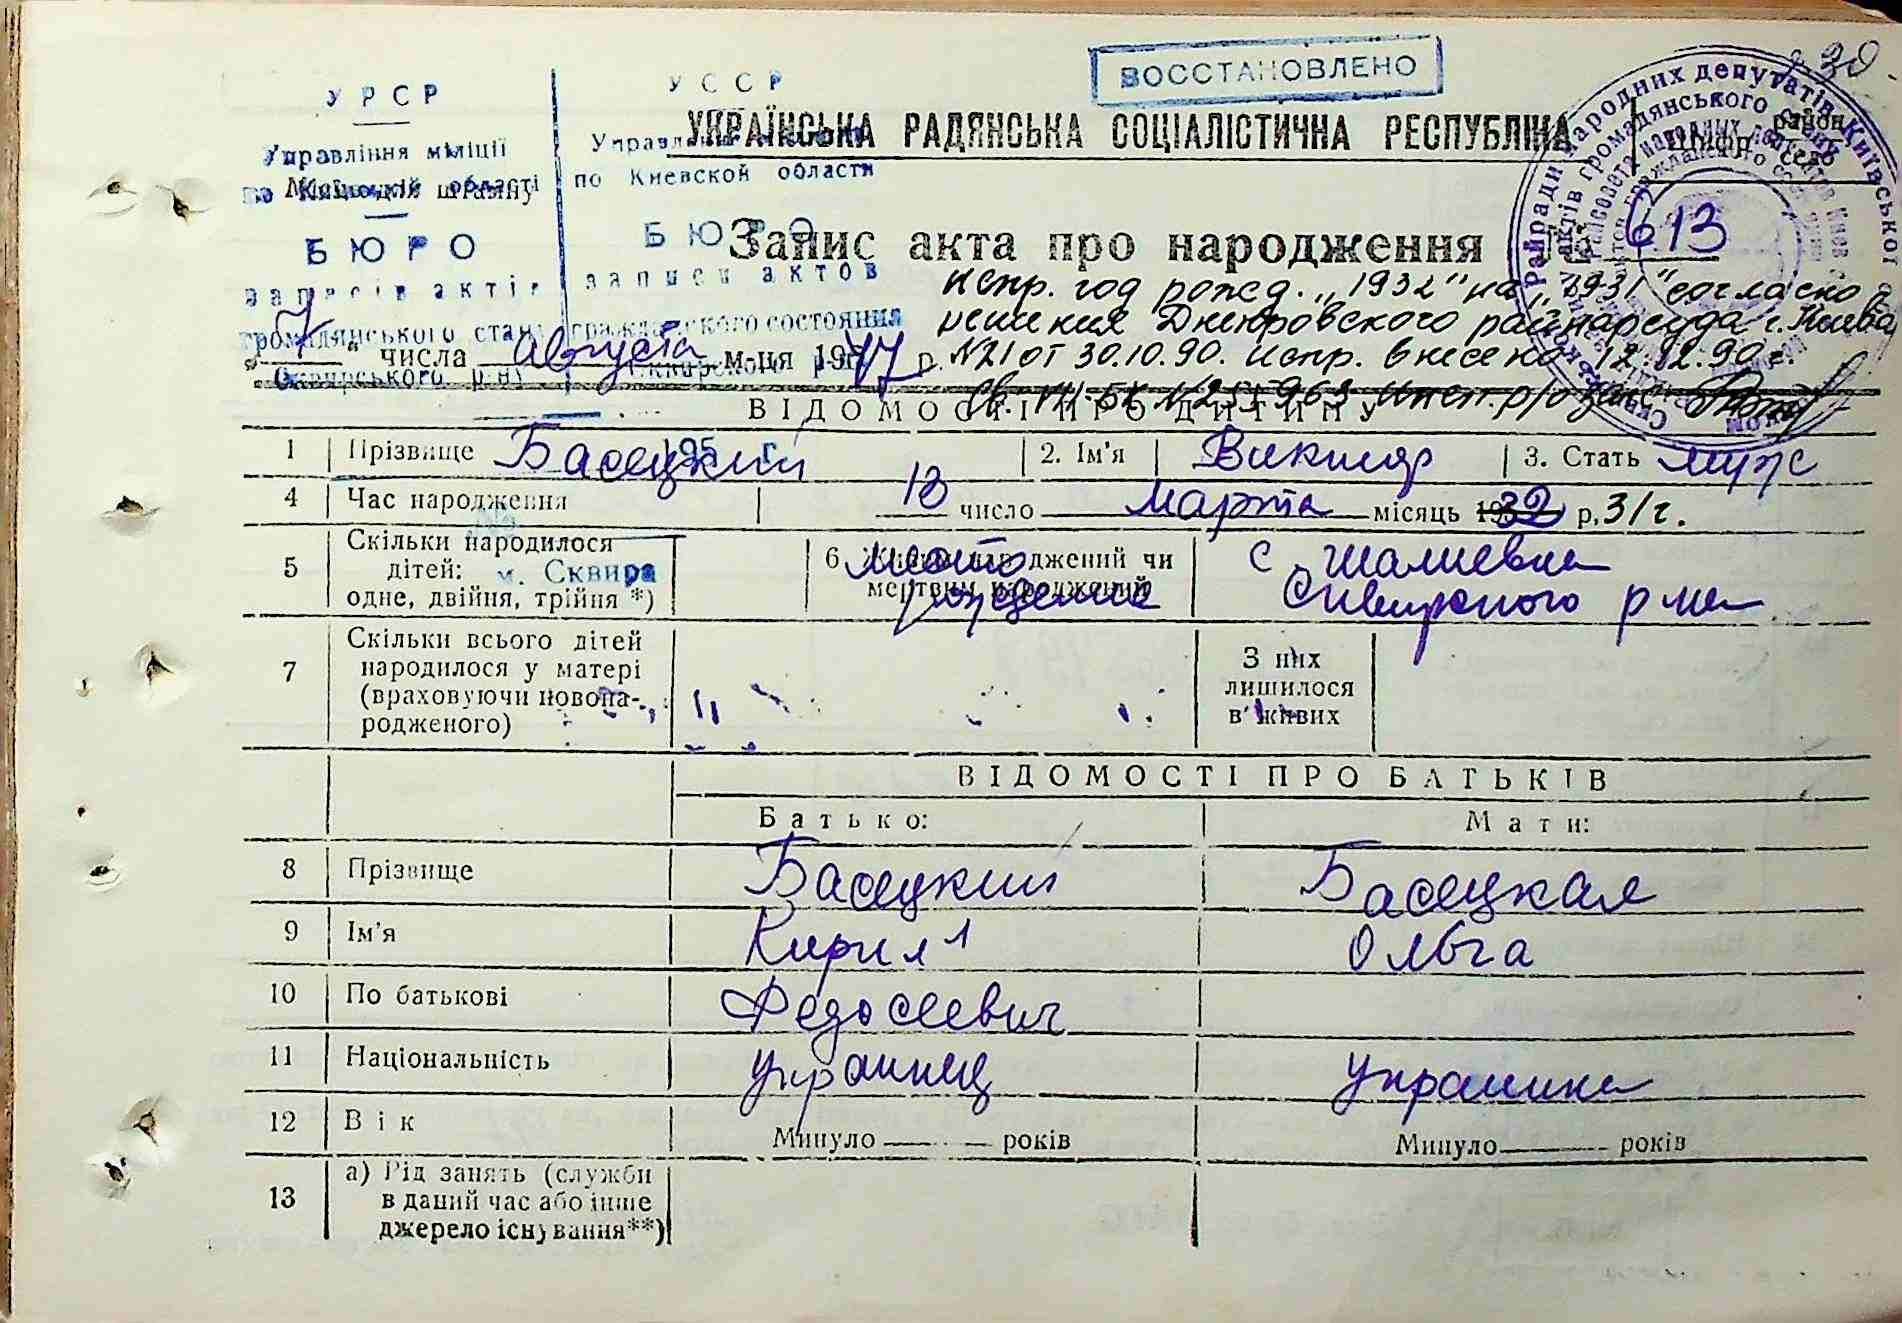 30
ВОССТАНОВЛЕНО
УРСР
УССР
УКРАЇНСЬКА РАДЯНСЬКА СОЦІАЛІСТИЧНА РЕСПУБЛІКА
Шифр район село
Управління міліції
по Киевской области
БЮРО
БЮРО
Запис акта про народження № 613
записів актів
записи актов
громадянського стану
гражданского состояния
Испр. год рожд. „1932" на „1931" согласно
решения Днепровского райнарсуда г. Киева
„7" числа августа м-ця 1947 р.
N21 от 30.10.90. Испр. внесено 12.12.90 г.
Сквирського р-ну
ВІДОМОСТІ ПРО ДИТИНУ
1 Прізвище Басецкий 2. Ім'я Виктор 3. Стать муж
195 г.
4 Час народження 13 число марта місяць 1932 р. 31 г.
5 Скільки народилося дітей: одне, двійня, трійня *)
м. Сквира
6. Живим народжений чи мертвим народжений
Место рождения
с. Шалиевка
Сквирского р-на
7 Скільки всього дітей народилося у матері (враховуючи новонародженого)
З них лишилося в живих
ВІДОМОСТІ ПРО БАТЬКІВ
Батько: Мати:
8 Прізвище Басецкий Басецкая
9 Ім'я Кирилл Ольга
10 По батькові Федосеевич
11 Національність украинец украинка
12 Вік Минуло — років Минуло — років
13 а) Рід занять (служби
в даний час або інше
джерело існування**)